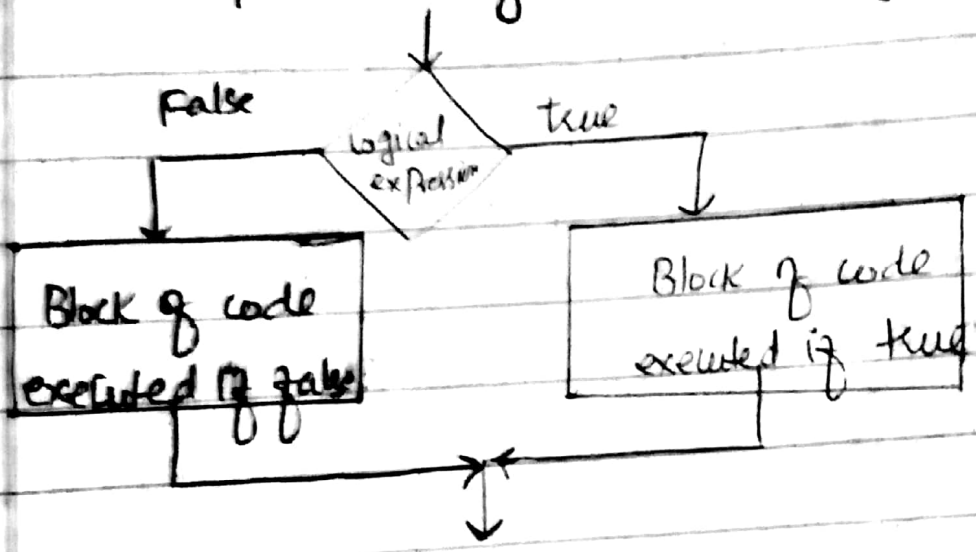 False
true
logical
expression
Block of code
executed if false
Block of code
executed if true